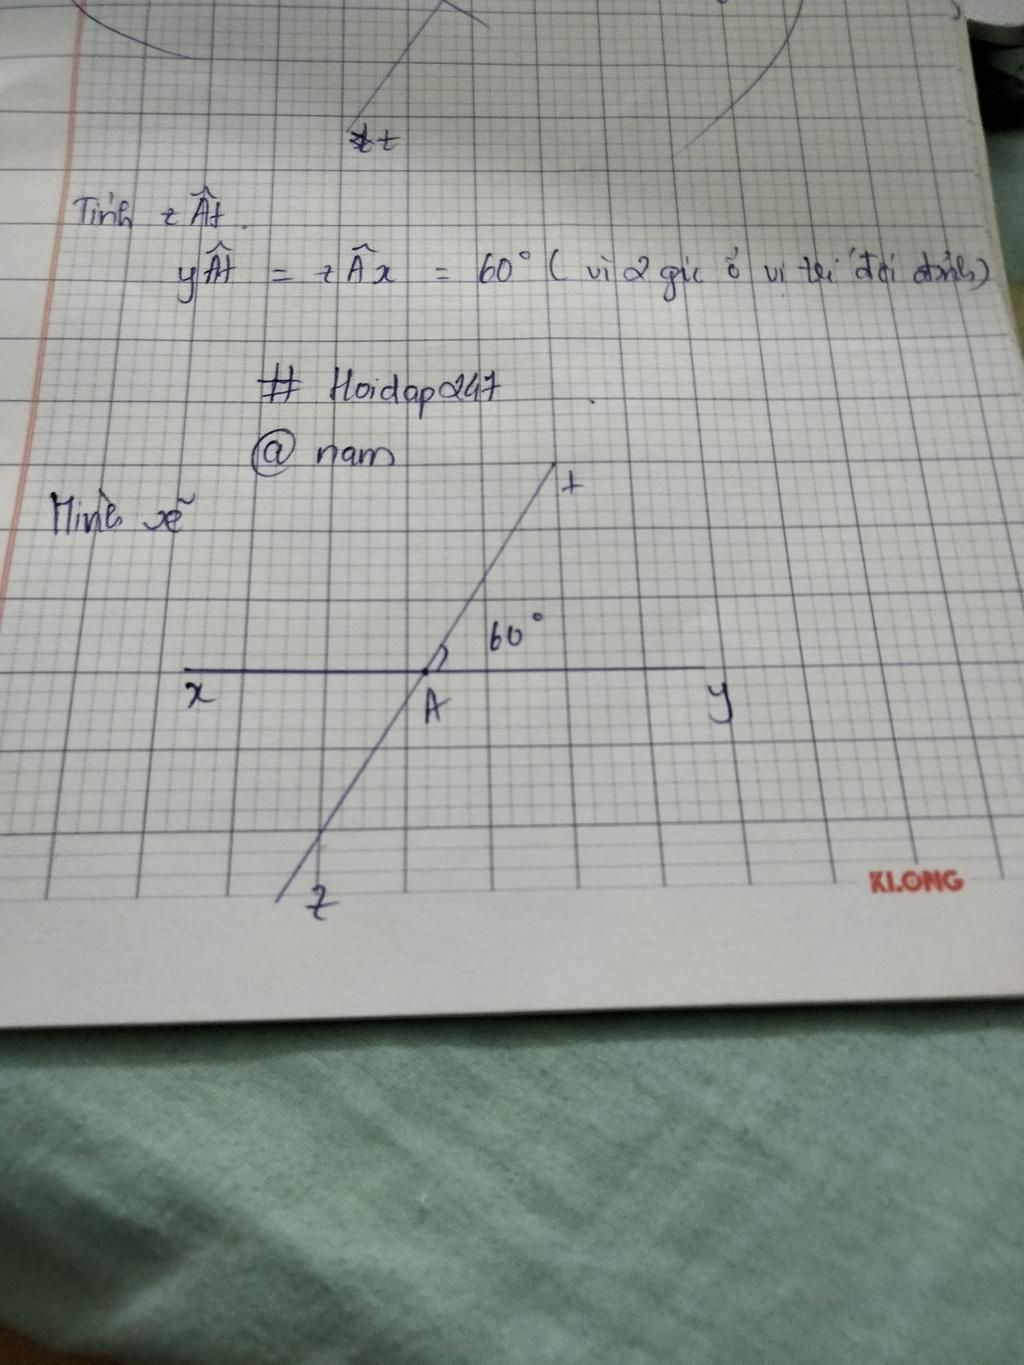 t
Tính zÂt.
yÂt = zÂx = 60° ( vì 2 góc ở vị trí đối đỉnh)
# Hoidap247
@ nam
Hình vẽ
t
60°
x A y
z
KLONG